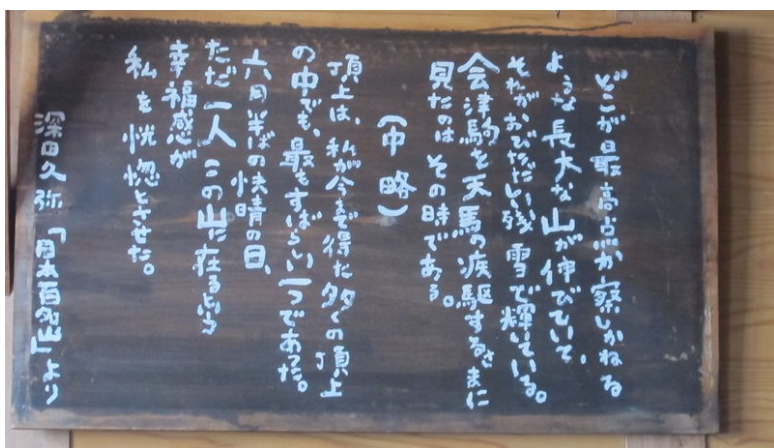 どこが最高点か察しかねる
ような長大な山が伸びていて、
それがおびただしい残雪で輝いている。
会津駒を天馬の疾駆するさまに
見たのは その時である。
(中略)
頂上は、私が今まで得た多くの頂上
の中でも、最もすばらしい一つであった。
六月半ばの快晴の日、
ただ一人この山に在るという
幸福感が
私を恍惚とさせた。
深田久弥「日本百名山」より